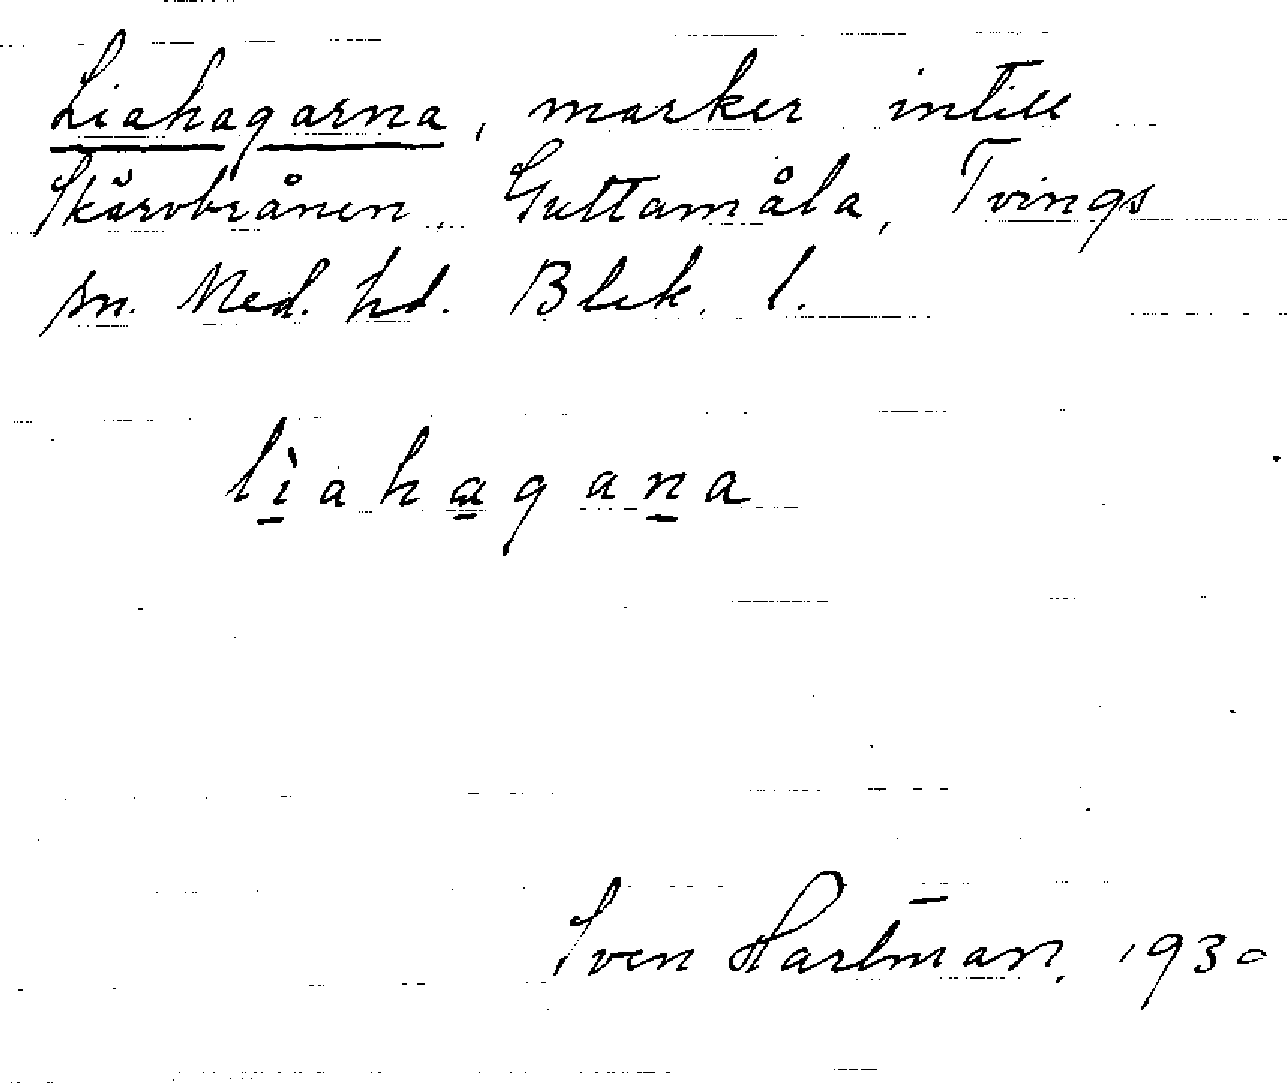 Liahagarna, marker intill
Skärvbrånen, Guttamåla, Tvings
sn. Med. hd. Blek. l.
lìahagana
Sven Hartman, 1930